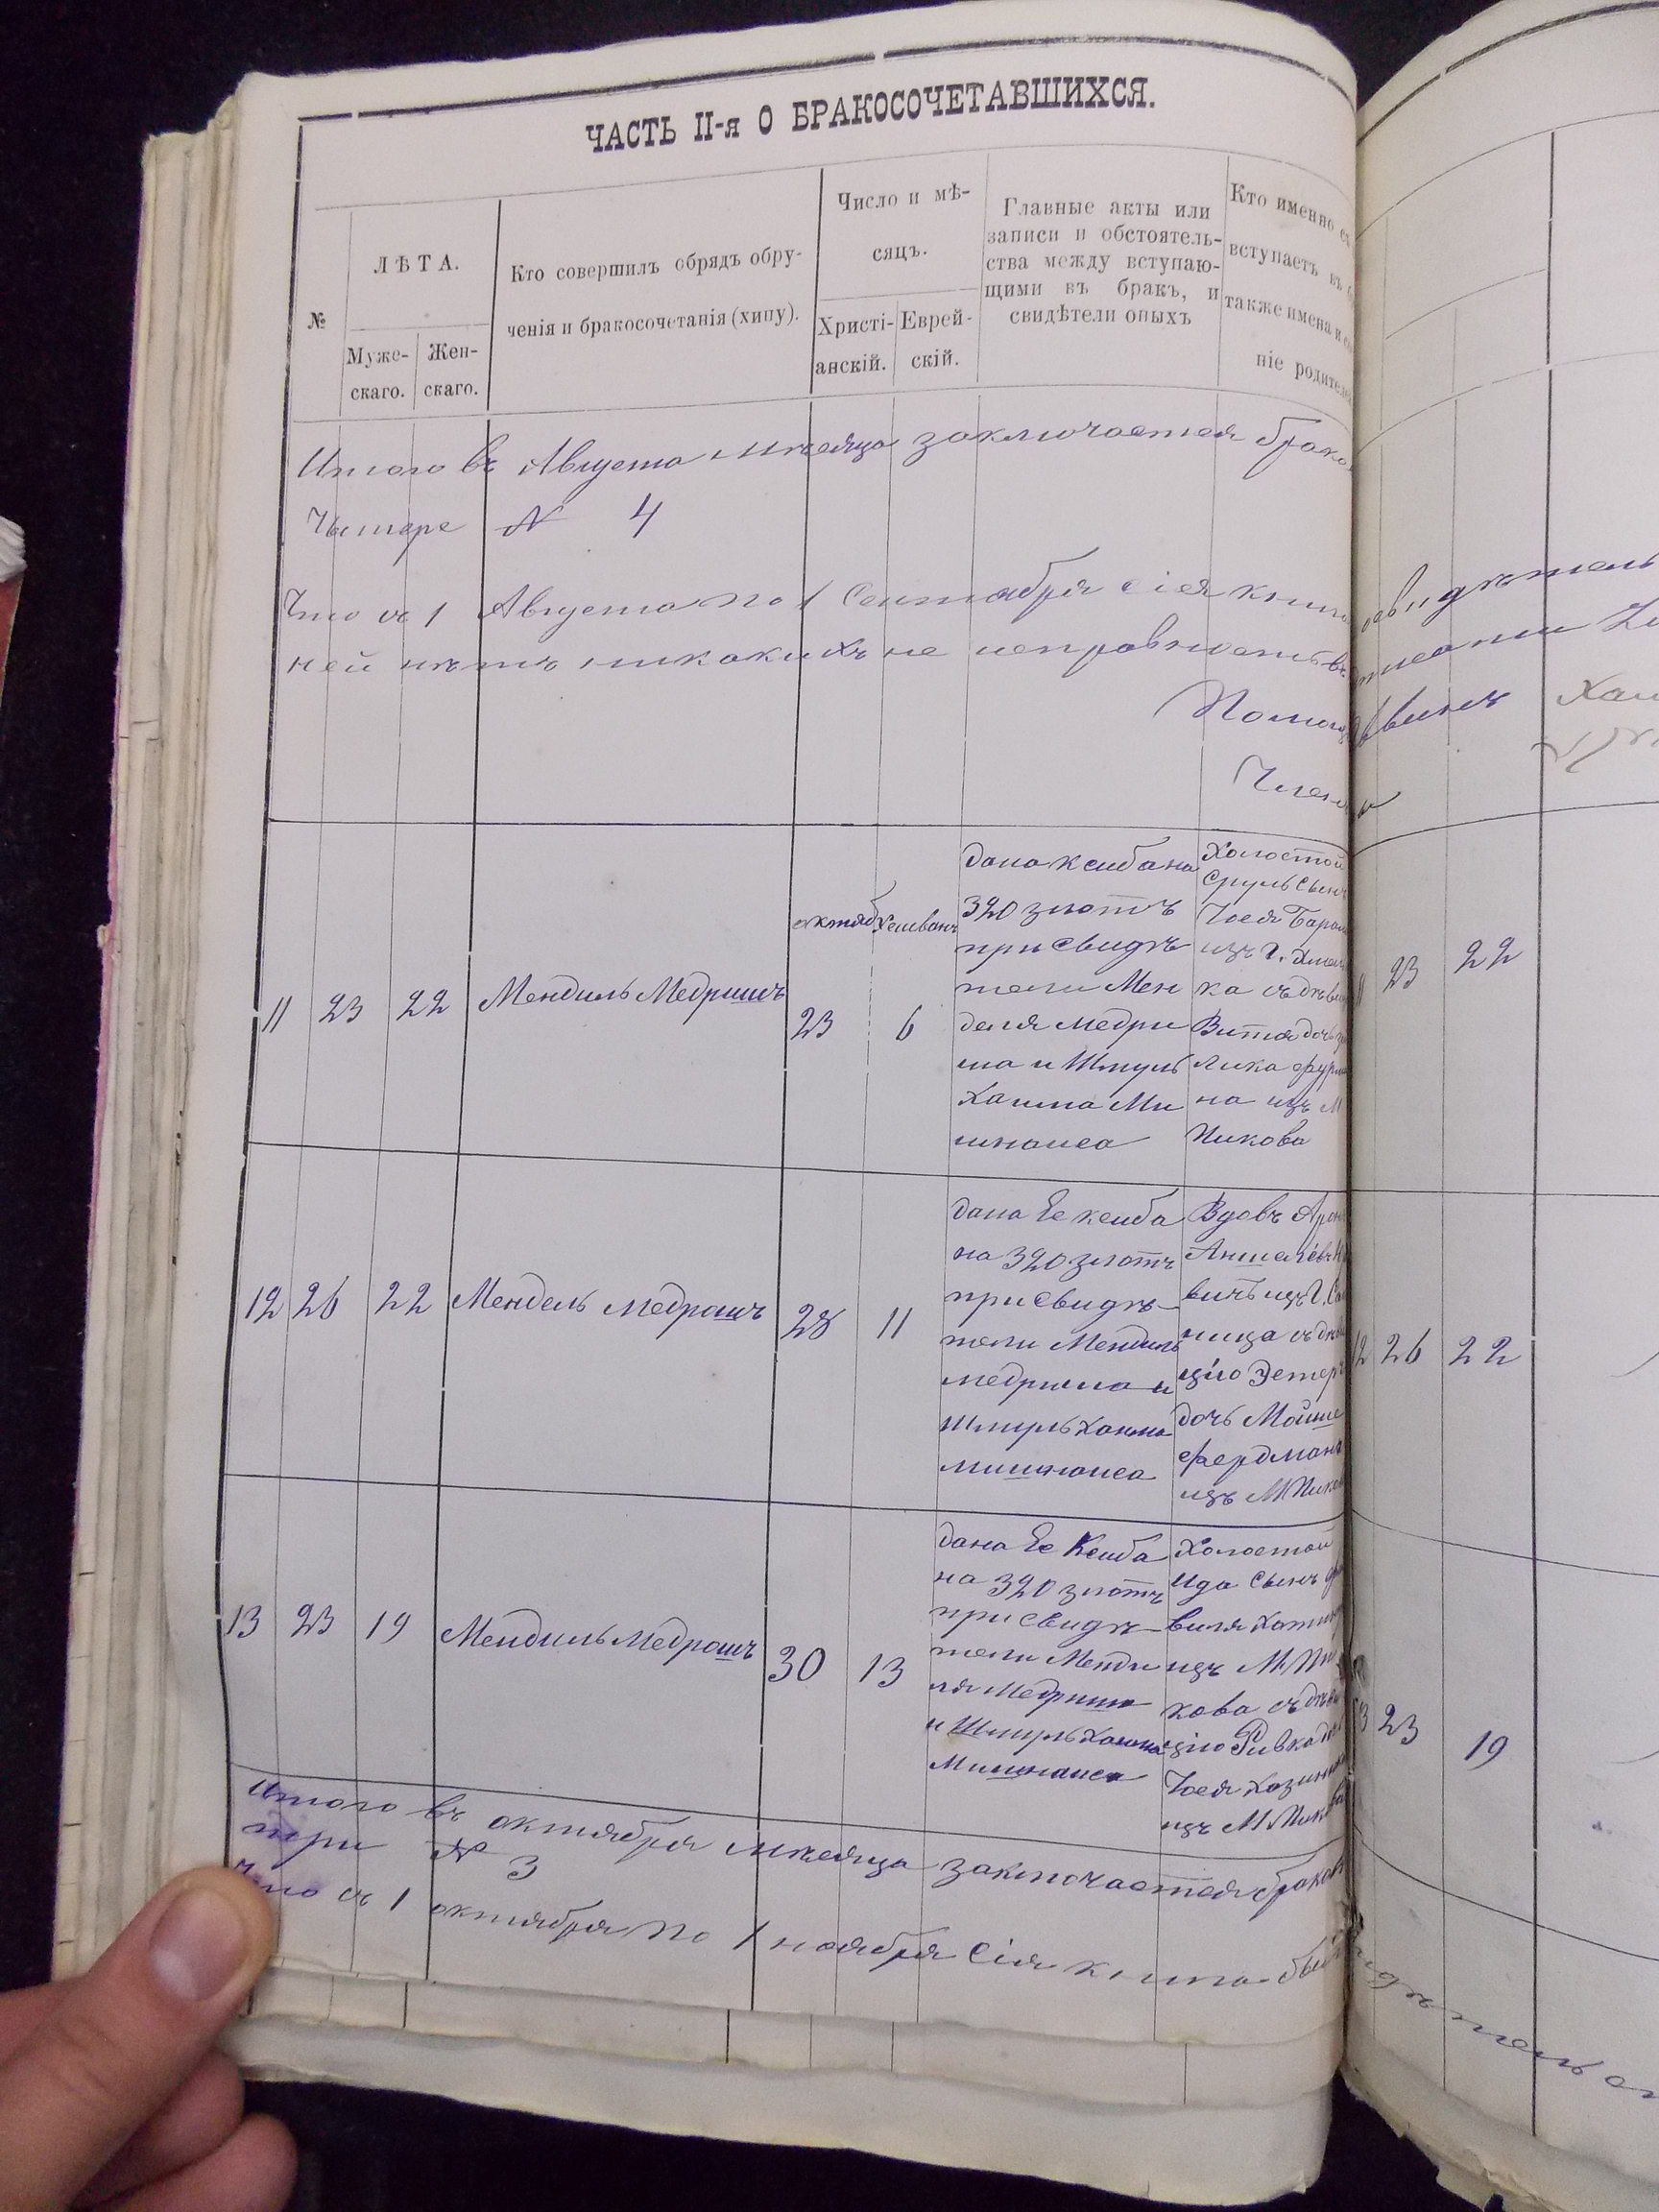 ЧАСТЬ II-я О БРАКОСОЧЕТАВШИХСЯ.
№
ЛѢТА.
Муже-
скаго.
Жен-
скаго.
Кто совершилъ обрядъ обру-
ченія и бракосочетанія (хипу).
Число и мѣ-
сяцъ.
Христі-
анскій.
Еврей-
скій.
Главные акты или
записи и обстоятель-
ства между вступаю-
щими въ бракъ, и
свидѣтели оныхъ
Кто именно съ
вступаетъ въ
также имена и
ніе родител
Итого въ Августа мѣсяца заключается брако
Чытере № 4
Что съ 1 Августа по 1 Сентября сія книга
ней нѣтъ никакихъ не исправностьвъ
Помощ
Члены
11
23
22
Мендиль Медришъ
октяб
23
Хешванъ
6
дана ксиба на
320 злотъ
при свидѣ
тели Мен
деля Медри
ша и Шмуль
Хаима Ми
шнаиса
Холостой
Сруль сынъ
изъ Г. Хмел
ка съ дѣви
дочь
лика Фурм
на изъ М
Пикова
12
26
22
Мендель Медрашъ
28
11
дана Ее ксиба
на 320 злотъ
при свидѣ-
тели Мендиль
Медриша и
Шмуль Хаима
Мишнаиса
Вдовъ Арон
вичъ изъ Г.
ница съ дѣви
цію Эстеръ
дочь Мойше
Фердманъ
изъ М Пиков
13
23
19
Мендиль Медрашъ
30
13
дана Ее Ксиба
на 320 злотъ
при свидѣ-
тели Менди
ля Медриша
и Шмуль Хаима
Мишнаиса
Холостой
Ида сынъ
изъ М. Пи
кова съ дѣви
цію Ривка до
изъ М Пикова
Итого въ октября мѣсяца заключается браков
три № 3
Что съ 1 октября по 1 ноября Сія книга бы
свидѣтель
11
23
22
12
26
22
13
23
19